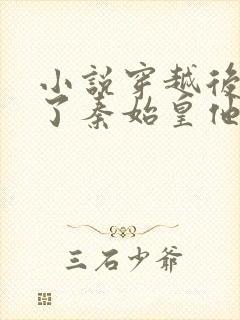 小說穿越後
了秦始皇他
三石少爺